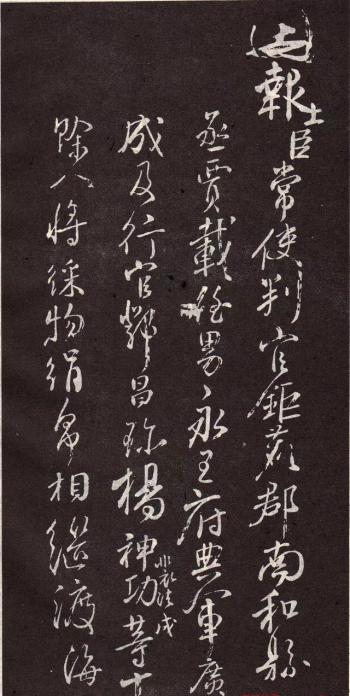 報士臣常使判官鉅鹿郡南和縣
丞賈載姪男永王府典軍廣
成及行官鄧昌珍楊神功等十
餘人將綵物絹帛相繼渡海